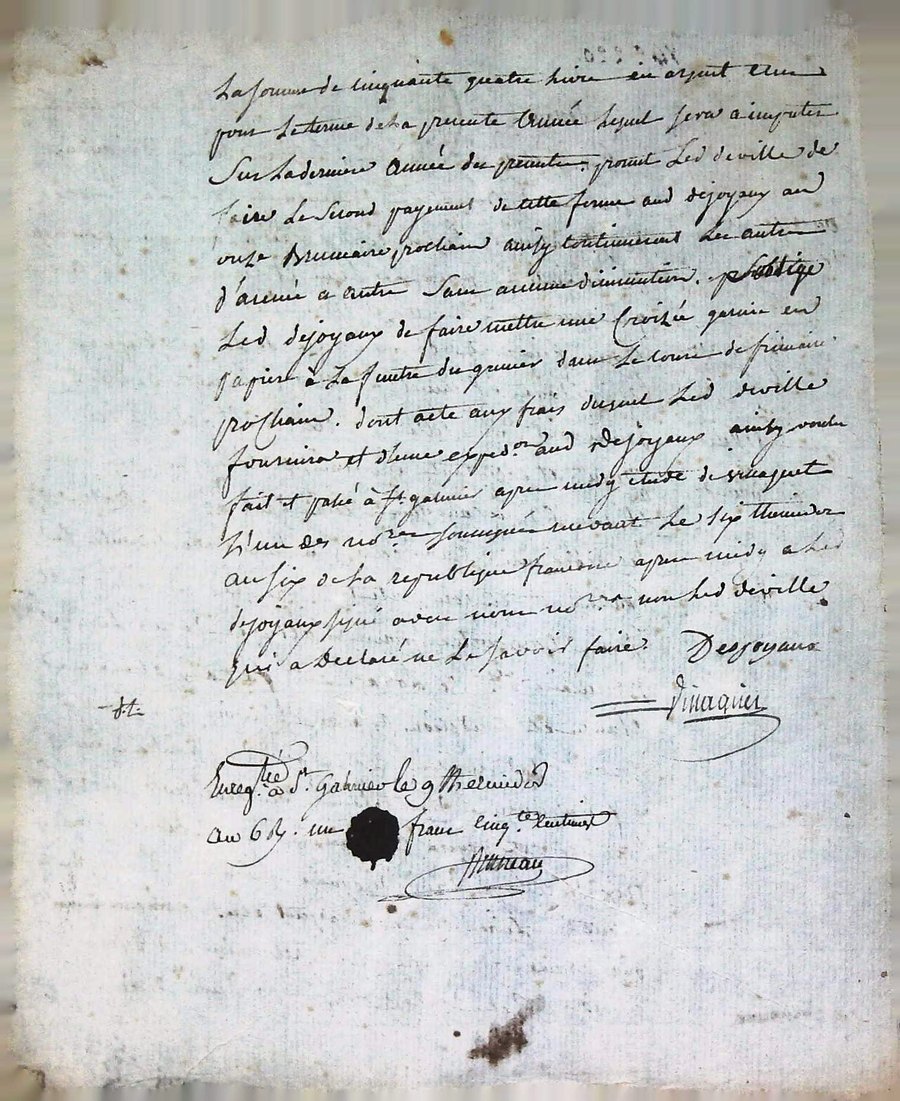 La somme de cinquante quatre livre en argent
pour le terme de La presente Année lequel sera a imputer
Sur La derniere Année des presentes. promet Led deville de
faire Le Second payement de cette ferme aud dejoyaux au
onze Brumaire prochain ainsy continueront les autres
d'année a autre Sans aucune diminution. s'oblige
Led dejoyaux de faire mettre une Croizée garnie en
papier à La fenetre du grenier dans Le cours de frimaire
prochain. dont acte aux frais duquel Led deville
fournira et d'une exped.on aud Dejoyaux ainsy voulu
fait et passé à St. galmier apres midy étude de vinagner
L'un des no.res soussignés le six thermidor
an six de La republique francoise apres midy a Led
dejoyaux signé avec nous no.res non Led deville
qui a Declaré ne Le savoir faire. Desjoyaux
Vinagner
Enreg.tré a St. Galmier le 9 thermidor
an 6 R. un franc cinq.te centimes